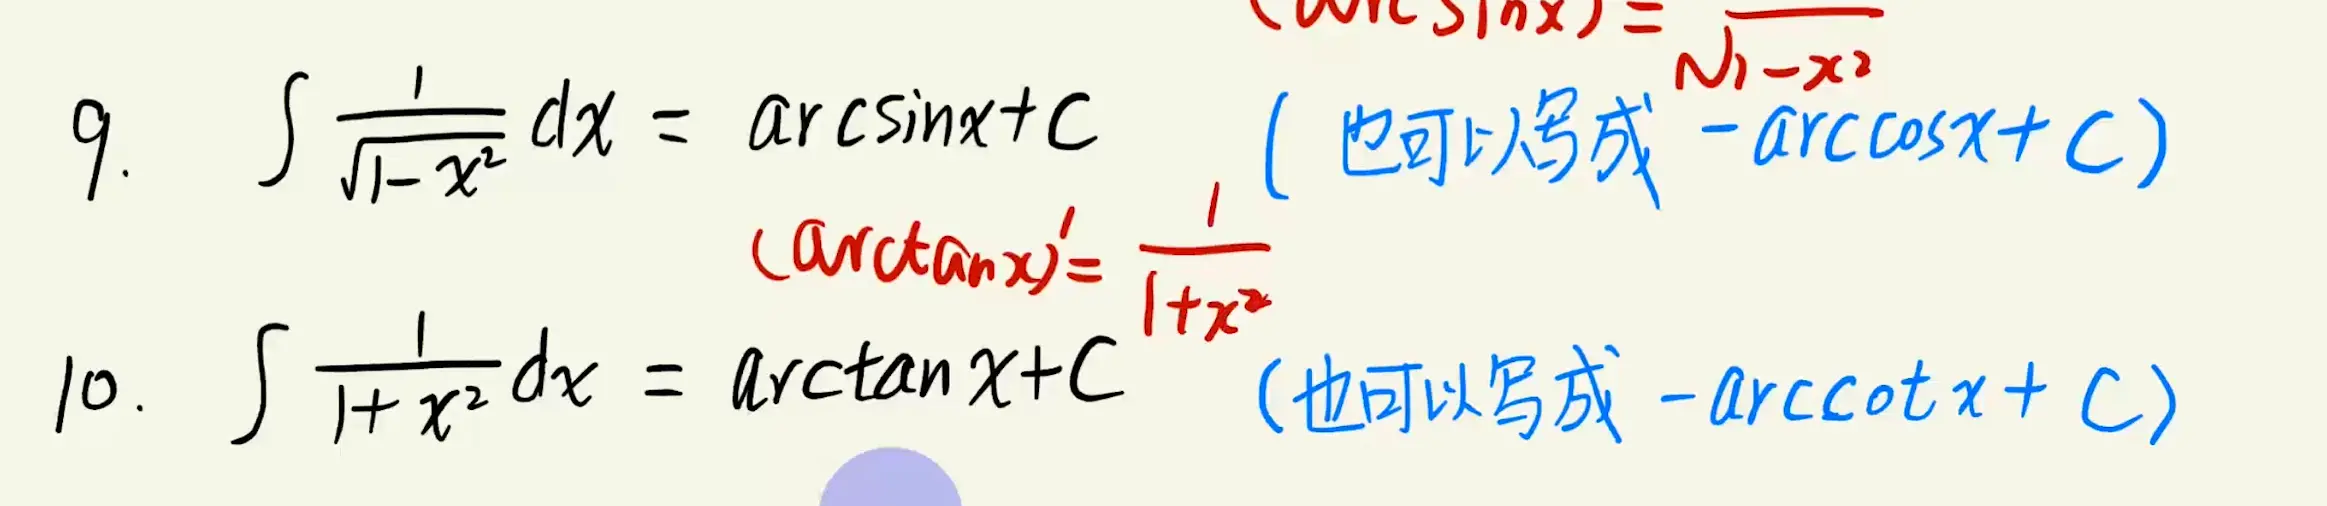 (arcsinx)=1/√1-x²
9. ∫ 1/√1-x² dx = arcsinx+C (也可以写成 -arccosx+C)
(arctanx)'= 1/1+x²
10. ∫ 1/1+x² dx = arctanx+C (也可以写成 -arccotx+C)